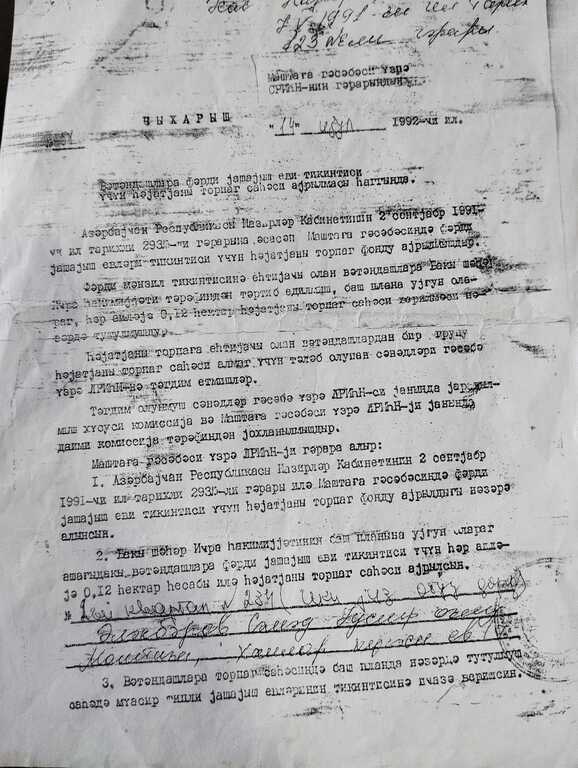 123 №ли гәрары
Маштаға гәсәбәси үзрә
ӘРИҺН-нин гәрарындан
ЧЫХАРЫШ
"14" 1992-чи ил.
Вәтәндашлара фәрди јашајыш еви тикинтиси
үчүн һәјәтјаны торпаг саһәси ајрылмасы һаггында.
Азәрбајҹан Республикасы Назирләр Кабинетинин 2 сентјабр 1991-
чи ил тарихли 293 -ли гәрарына әсасән Маштаға гәсәбәсиндә фәрди
јашајыш евләри тикинтиси үчүн һәјәтјаны торпаг фонду ајрылмышдыр.
Фәрди мәнзил тикинтисинә еһтијаҹы олан вәтәндашлара Бакы шәһәр
Иҹра һакимијјәти тәрәфиндән тәртиб едилмиш, баш плана ујғун ола-
раг, һәр аиләјә 0,12 һектар һәјәтјаны торпаг саһәси верилмәси нә-
зәрдә тутулмушдур.
Һәјәтјаны торпаға еһтијаҹы олан вәтәндашлардан бир групу
һәјәтјаны торпаг саһәси алмаг үчүн тәләб олунан сәнәдләри гәсәбә
үзрә ӘРИҺН-нә тәгдим етмишләр.
Тәгдим олунмуш сәнәдләр гәсәбә үзрә ӘРИҺН-си јанында јарадыл-
мыш хүсуси комиссија вә Маштаға гәсәбәси үзрә ӘРИҺН-ји јанында
даими комиссија тәрәфиндән јохланылмышдыр.
Маштаға гәсәбәси үзрә ӘРИҺН-ји гәрара алыр:
1. Азәрбајҹан Республикасы Назирләр Кабинетинин 2 сентјабр
1991-чи ил тарихли 293 -ли гәрары илә Маштаға гәсәбәсиндә фәрди
јашајыш еви тикинтиси үчүн һәјәтјаны торпаг фонду ајрылдығы нәзәрә
алынсын.
2. Бакы шәһәр Иҹра һакимијјәтинин баш планына ујғун олараг
ашағыдакы вәтәндашлара фәрди јашајыш еви тикинтиси үчүн һәр аилә-
јә 0,12 һектар һесабы илә һәјәтјаны торпаг саһәси ајрылсын.
№ квартал № 234 (ики јүз отуз дөрд)
Сәмәд
ев
3. Вәтәндашлара торпаг саһәсиндә баш планда нәзәрдә тутулмуш
саһәдә мүасир типли јашајыш евләринин тикинтисинә иҹазә верилсин.